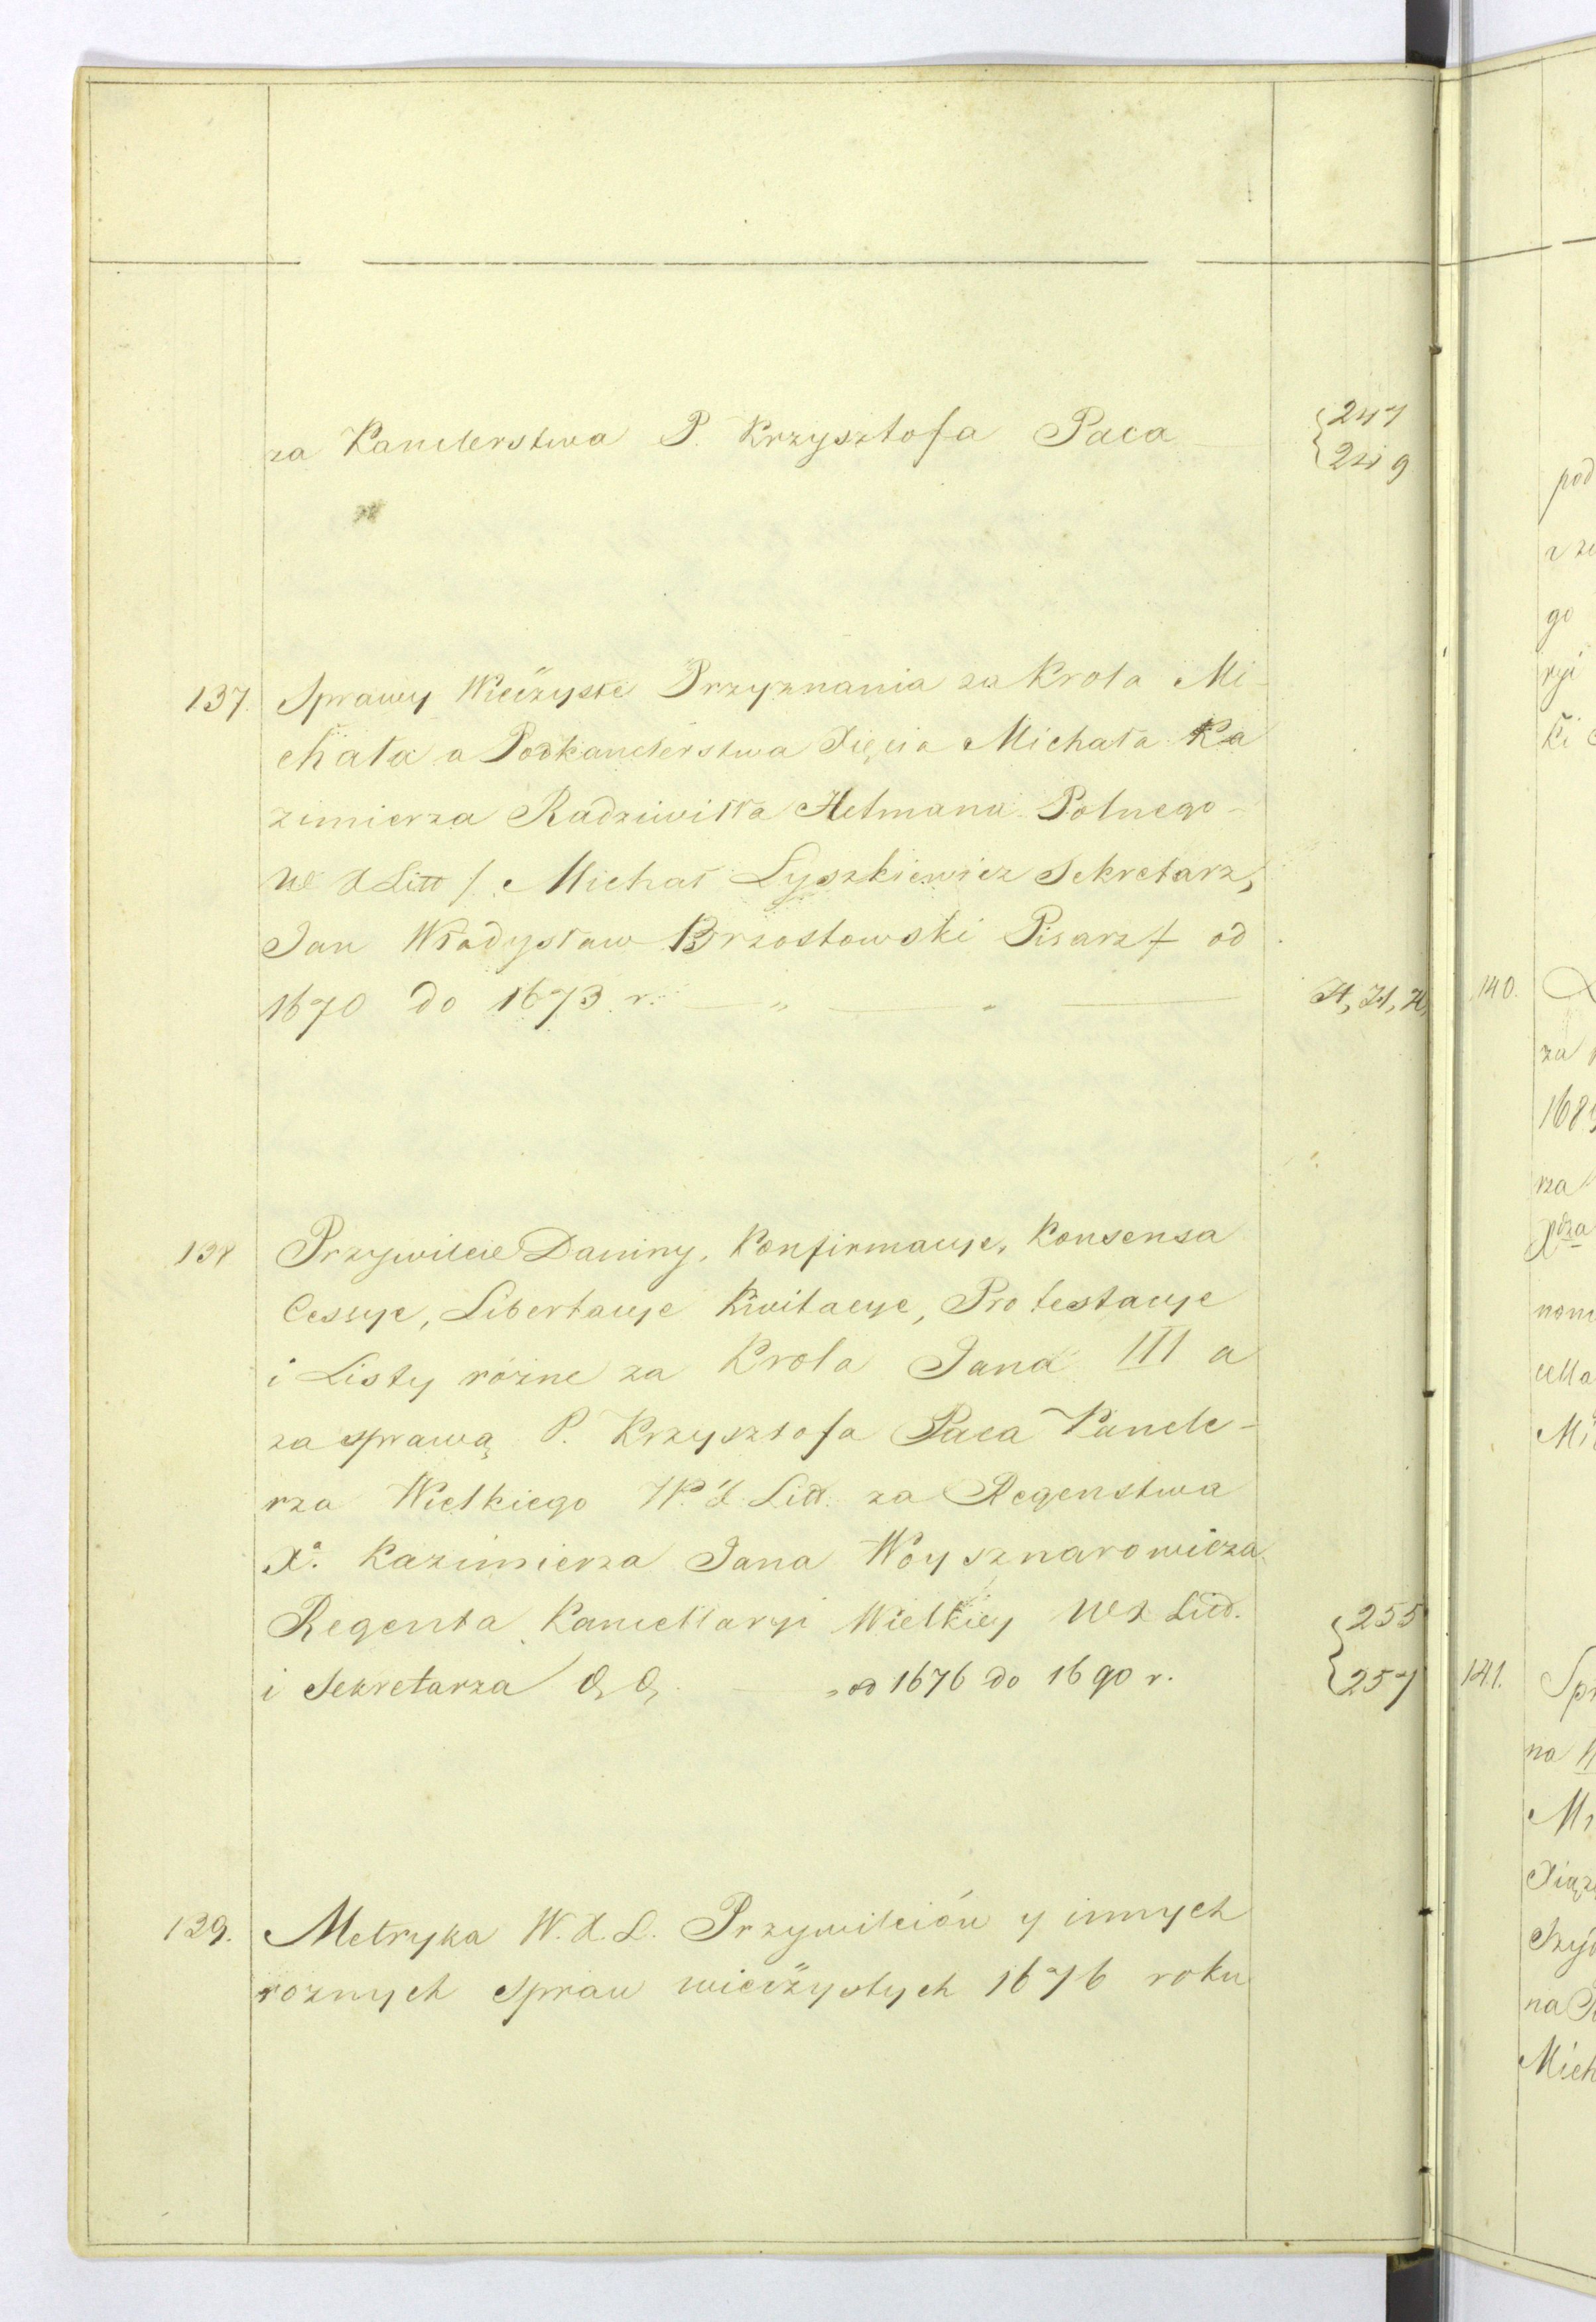 za Kanclerstwa P. Krzysztofa Paca
{247
{249
137. Sprawy Wieczyste Przyznania za Krola Mi-
chała a Podkanclerstwa Xięcia Michała Ka
zimierza Radziwiłła Hetmana Polnego-
W X Litt /. Michał Lyszkiewicz Sekretarz,
Jan Władysław Brzostowski Pisarz / od
1670 do 1673. r. — " — " —
138 Przywileie Daniny, Konfirmacye, Konsensa
Cessye, Libertacye Kwitacye, Protestacye
i Listy rózne za Krola Jana III a
za sprawą P. Krzysztofa Paca Kancle-
rza Wielkiego W. X. Litt. za Regenstwa
Xa. Kazimierza Jana Woysznarowicza
Regenta Kancellaryi Wielkiey W X Litt.
i Sekretarza — od 1676 do 1690 r.
{255
{257
139. Metryka W. X. L. Przywileiów y innych
roznych Spraw wieczystych 1676 roku
140.
141.